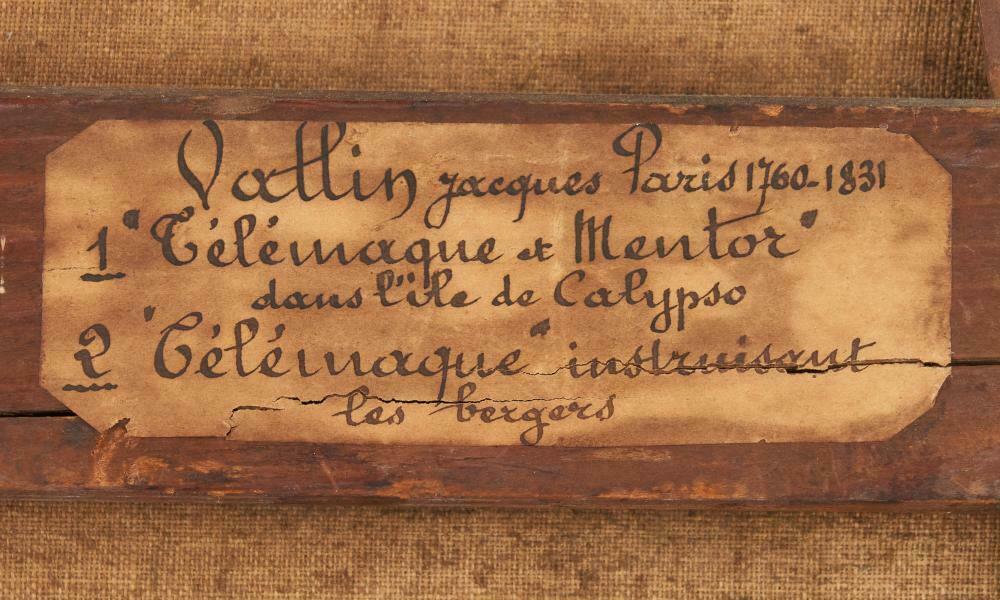 Vallin jacques Paris 1760-1831
1 "Télémaque et Mentor"
dans l'île de Calypso
2 "Télémaque" instruisant
les bergers